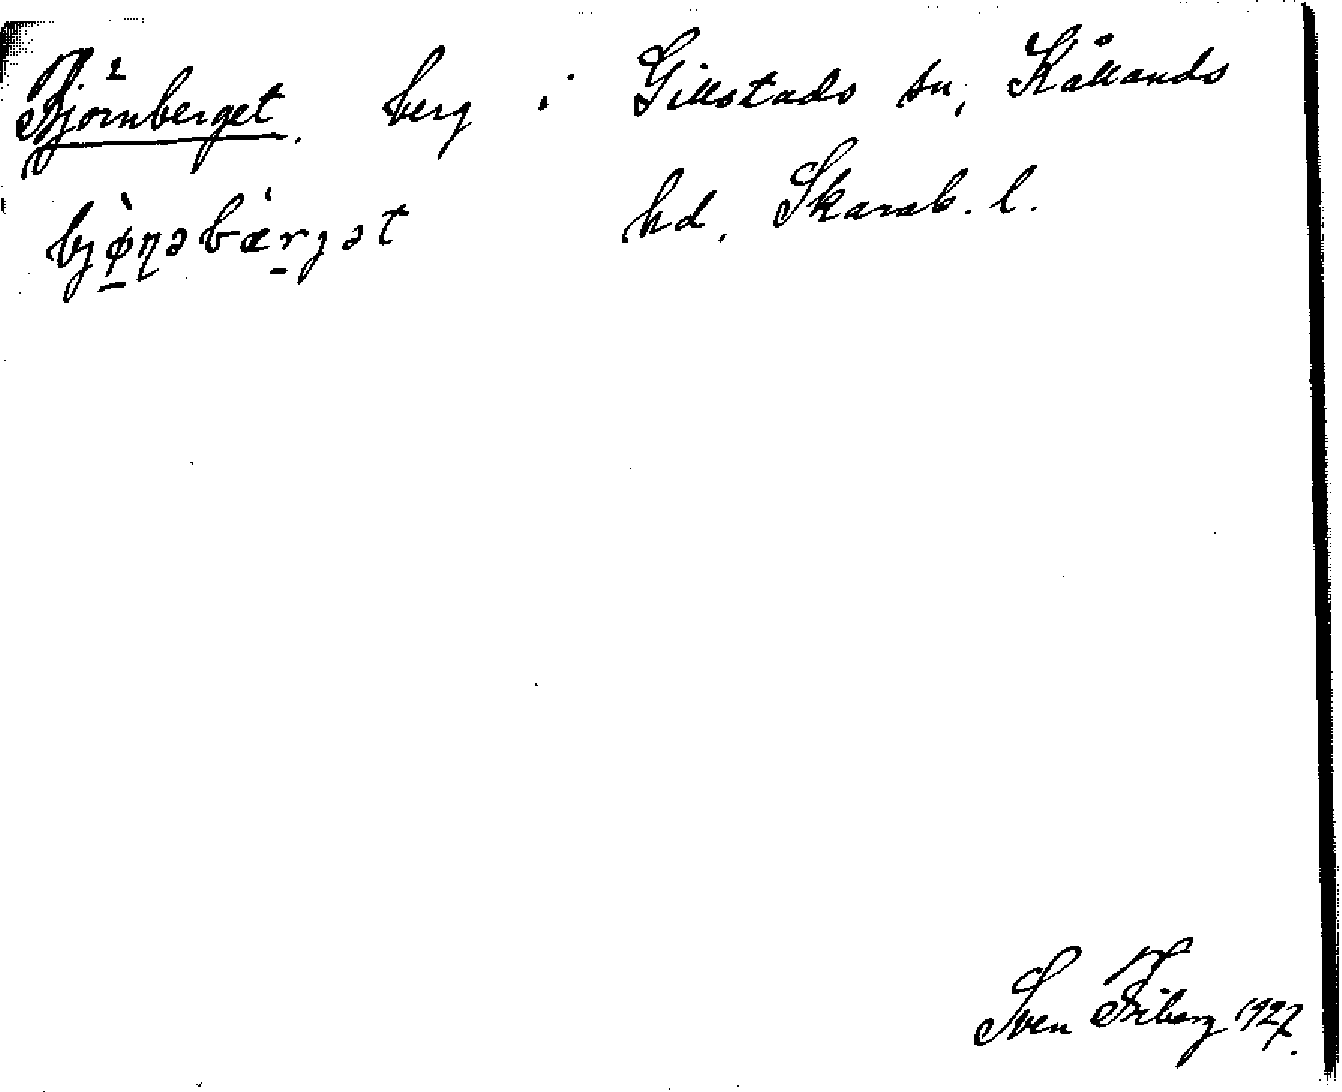 Björnberget. berg i Gillstads sn, Kållands
hd, Skarab. l.
bjø̀ṇəbærjət
Sven Friberg 1927.